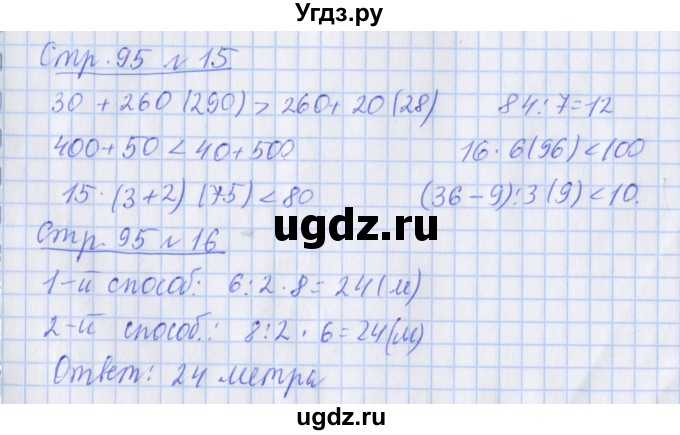 Угдз.ру
Стр. 95 № 15
30 + 260 (290) > 260 + 20 (28) 84 : 7 = 12
400 + 50 < 40 + 500 16 · 6 (96) < 100
15 · (3 + 2) (75) < 80 (36 – 9) : 3 (9) < 10.
ugdz.ru
Стр. 95 № 16
1-й способ: 6 : 2 · 8 = 24 (м)
2-й способ.: 8 : 2 · 6 = 24 (м)
Ответ: 24 метра
ugdz.ru